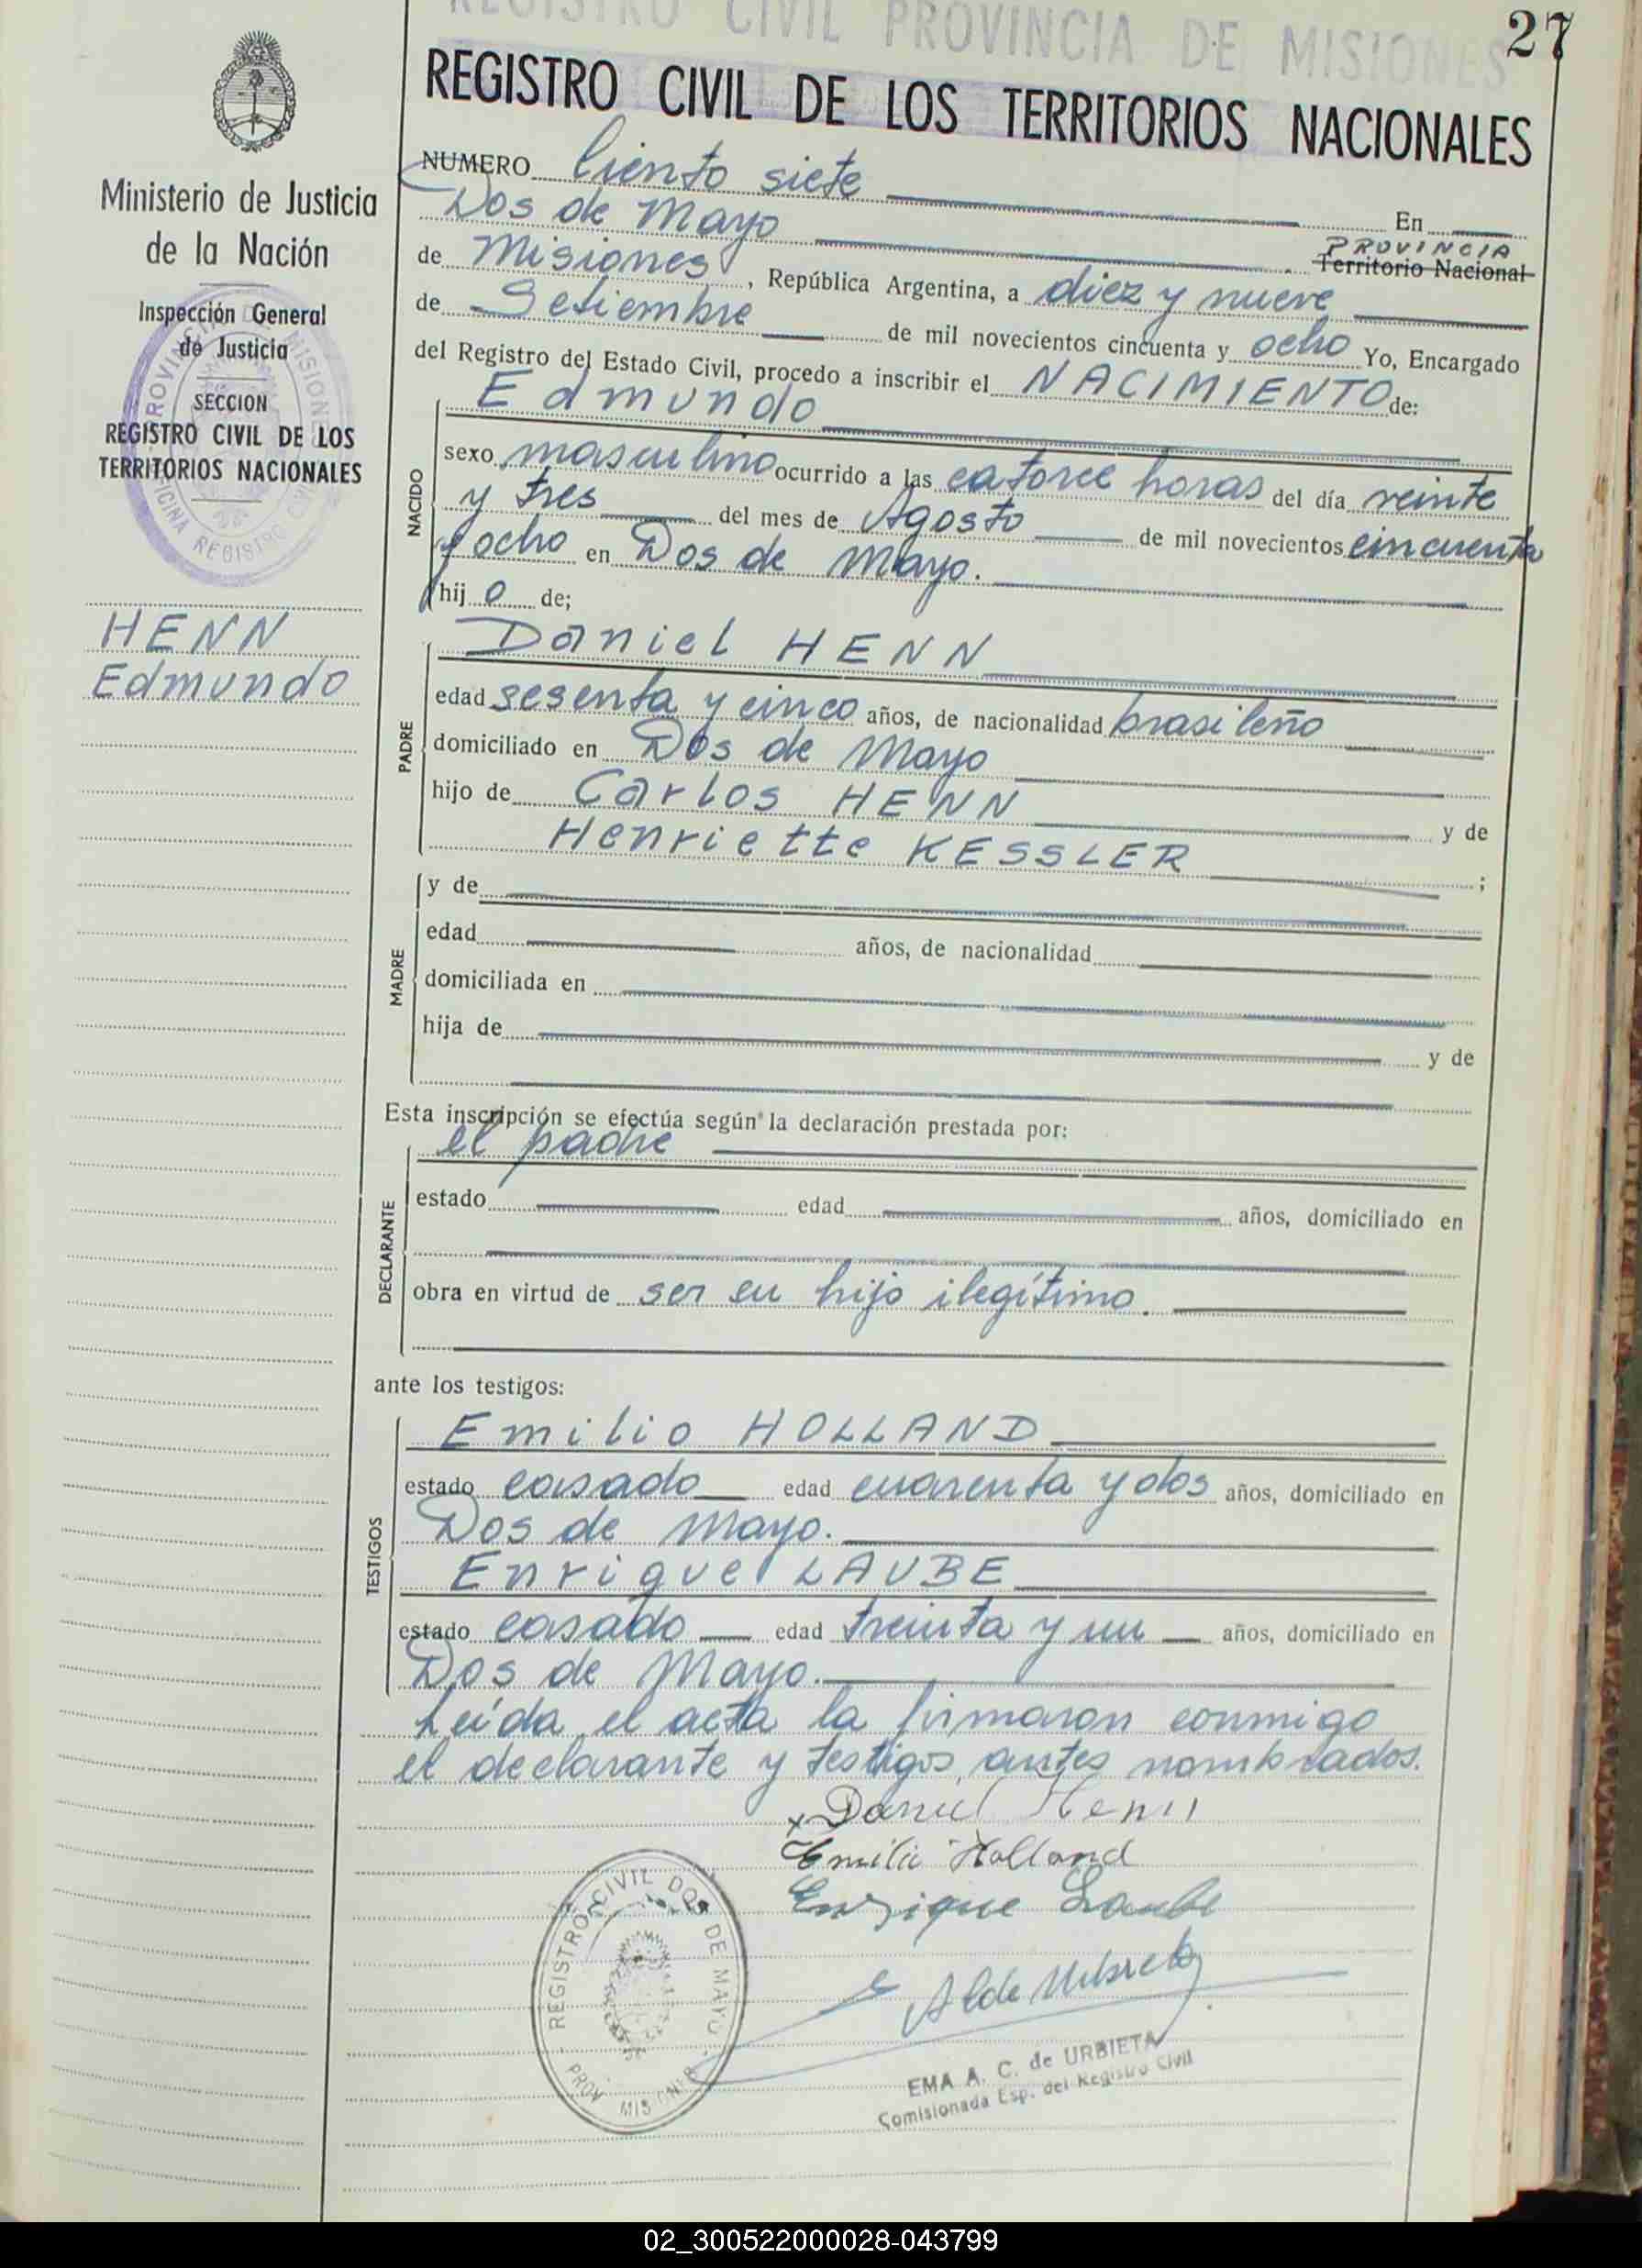 REGISTRO CIVIL PROVINCIA DE MISIONES
27
REGISTRO CIVIL DE LOS TERRITORIOS NACIONALES
Ministerio de Justicia
de la Nación
Inspección General
de Justicia
SECCION
REGISTRO CIVIL DE LOS
TERRITORIOS NACIONALES
HENN
Edmundo
NUMERO Ciento siete En
Dos de Mayo PROVINCIA
Territorio Nacional
de Misiones, República Argentina, a diez y nueve
de Setiembre de mil novecientos cincuenta y ocho Yo, Encargado
del Registro del Estado Civil, procedo a inscribir el NACIMIENTO de:
NACIDO
Edmundo
sexo masculino ocurrido a las catorce horas del día veinte
y tres del mes de Agosto de mil novecientos cincuenta
y ocho en Dos de Mayo.
hijo de;
PADRE
Daniel HENN
edad sesenta y cinco años, de nacionalidad brasileño
domiciliado en Dos de Mayo
hijo de Carlos HENN y de
Henriette KESSLER ;
MADRE
y de
edad años, de nacionalidad
domiciliada en
hija de y de
Esta inscripción se efectúa según la declaración prestada por:
DECLARANTE
el padre
estado edad años, domiciliado en
obra en virtud de ser su hijo ilegítimo.
ante los testigos:
TESTIGOS
Emilio HOLLAND
estado casado edad cuarenta y dos años, domiciliado en
Dos de Mayo.
Enrique LAUBE
estado casado edad treinta y un años, domiciliado en
Dos de Mayo.
Leída el acta la firmaron conmigo
el declarante y testigos antes nombrados.
x Daniel Henn
Emilio Holland
Enrique Laube
REGISTRO CIVIL DOS DE MAYO
PROV. MISIONES
EMA A. C. de URBIETA
Comisionada Esp. del Registro Civil
02_300522000028-043799